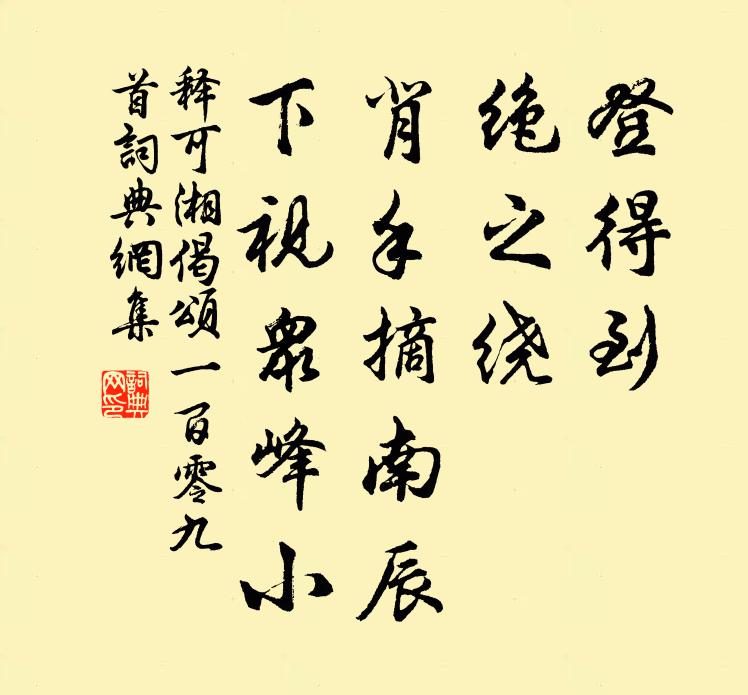 登得到
绝之绕
背手摘南辰
下视众峰小
释可湘偈颂一百零九
首词典网集
詞典网印